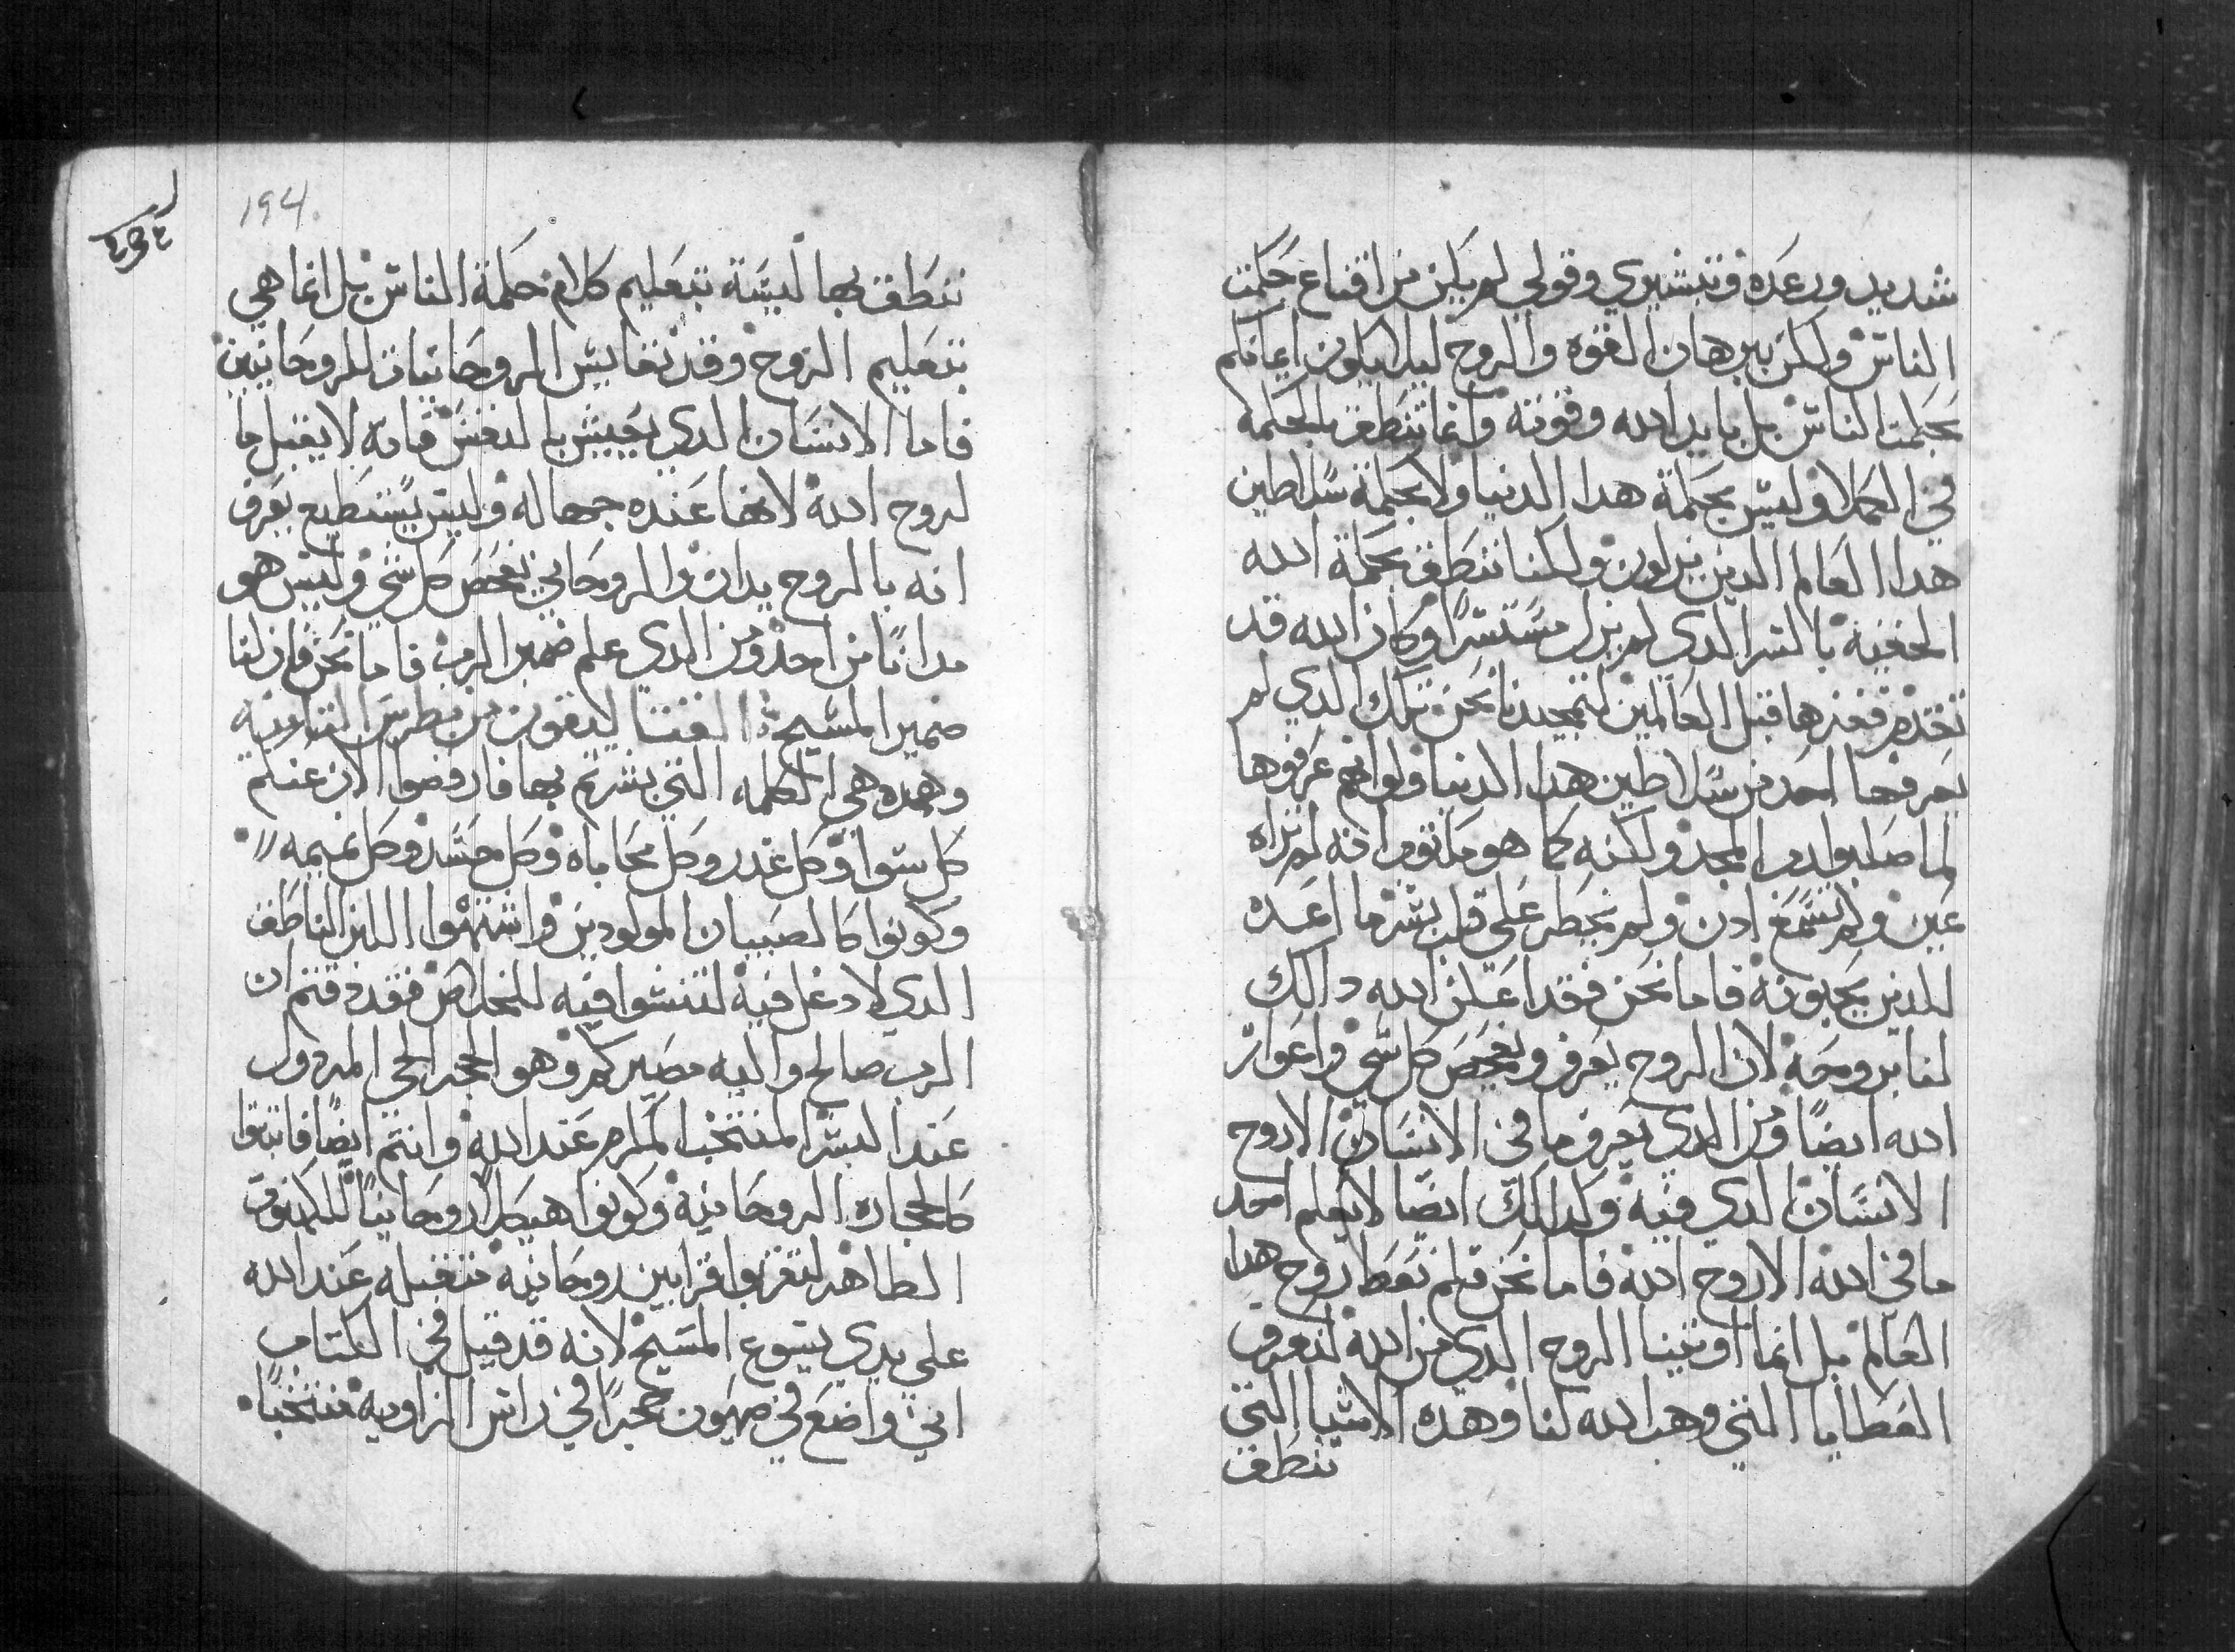 شديد ورعده وتبشيري وقولي لم يكن من اقناع حكمت
الناس ولكن ببرهان القوه والروح ليلا يكون ايمانكم
بحكمت الناس بل بايد الله وقوته وانما ننطق بالحكمة
في الكملا وليس بحكمة هدا الدنيا ولا بحكمة سلاطين
هدا العالم الدين يزلون ولكننا ننطق بحكمة الله
الخفية بالسر الدي لم يزل مستترًا وكان الله قد
تقدم ففرزها قبل العالمين لتمجيدنا نحن تلك الدي لم
يعرفها احد من سلاطين هدا الدنيا ولو انهم عرفوها
لما صلبوا رب المجد ولكنه كما هو مكتوب انه لم تراه
عين ولم تسمع ادن ولم يخطر على قلب بشر ما اعده
للدين يحبونه فاما نحن فقد اعلن الله دالك
لنا بروحه لان الروح يعرف ويفحص كل شي واعوار
الله ايضًا ومن الدي يعرف ما في الانسان الا روح
الانسان الدي فيه وكدالك ايضًا لا يعلم احد
ما في الله الا روح الله فاما نحن فلم نعطا روح هدا
العالم بل انما اوتينا الروح الدي من الله لنعرف
العطايا التي وهب الله لنا وهده الاشيا التي
ننطق
194
ننطق بها ليسة بتعليم كلام حكمة الناس بل انما هي
بتعليم الروح وقد نقايس الروحانيات للروحانيين
فاما الانسان الدي يعيش بالنفس فانه لا يقبل ما
لروح الله لانها عنده جهاله وليس يستطيع يعرف
انه بالروح يدان والروحاني يفحص كل شي وليس هو
مدانًا من احد ومن الدي علم ضمير الرب فاما نحن فان لنا
ضمير المسيح القتاليقون من بطرس التانيه
وهده هي الكلمه التي بشرتم بها فارفضوا الان عنكم
كل سوا وكل غدر وكل محاباه وكل حسد وكل نميمه
وكونوا كالصبيان المولودين واشتهوا اللبن الناطق
الدي لا دغل فيه لتنشوا فيه للخلاص فقد دقتم ان
الرب صالح واليه مصيركم وهو الحجر الحي المردول
عند البشر المنتخب المكرم عند الله وانتم ايضًا فابنوا
كالحجاره الروحانيه وكونوا هيكلا روحانيًا للكهنوت
الطاهر لتقربوا قرابين روحانيه متقبله عند الله
على يدي يسوع المسيح لانه قد قيل في الكتاب
اني واضع في صهيون حجرًا في راس الزاويه منتخبًا